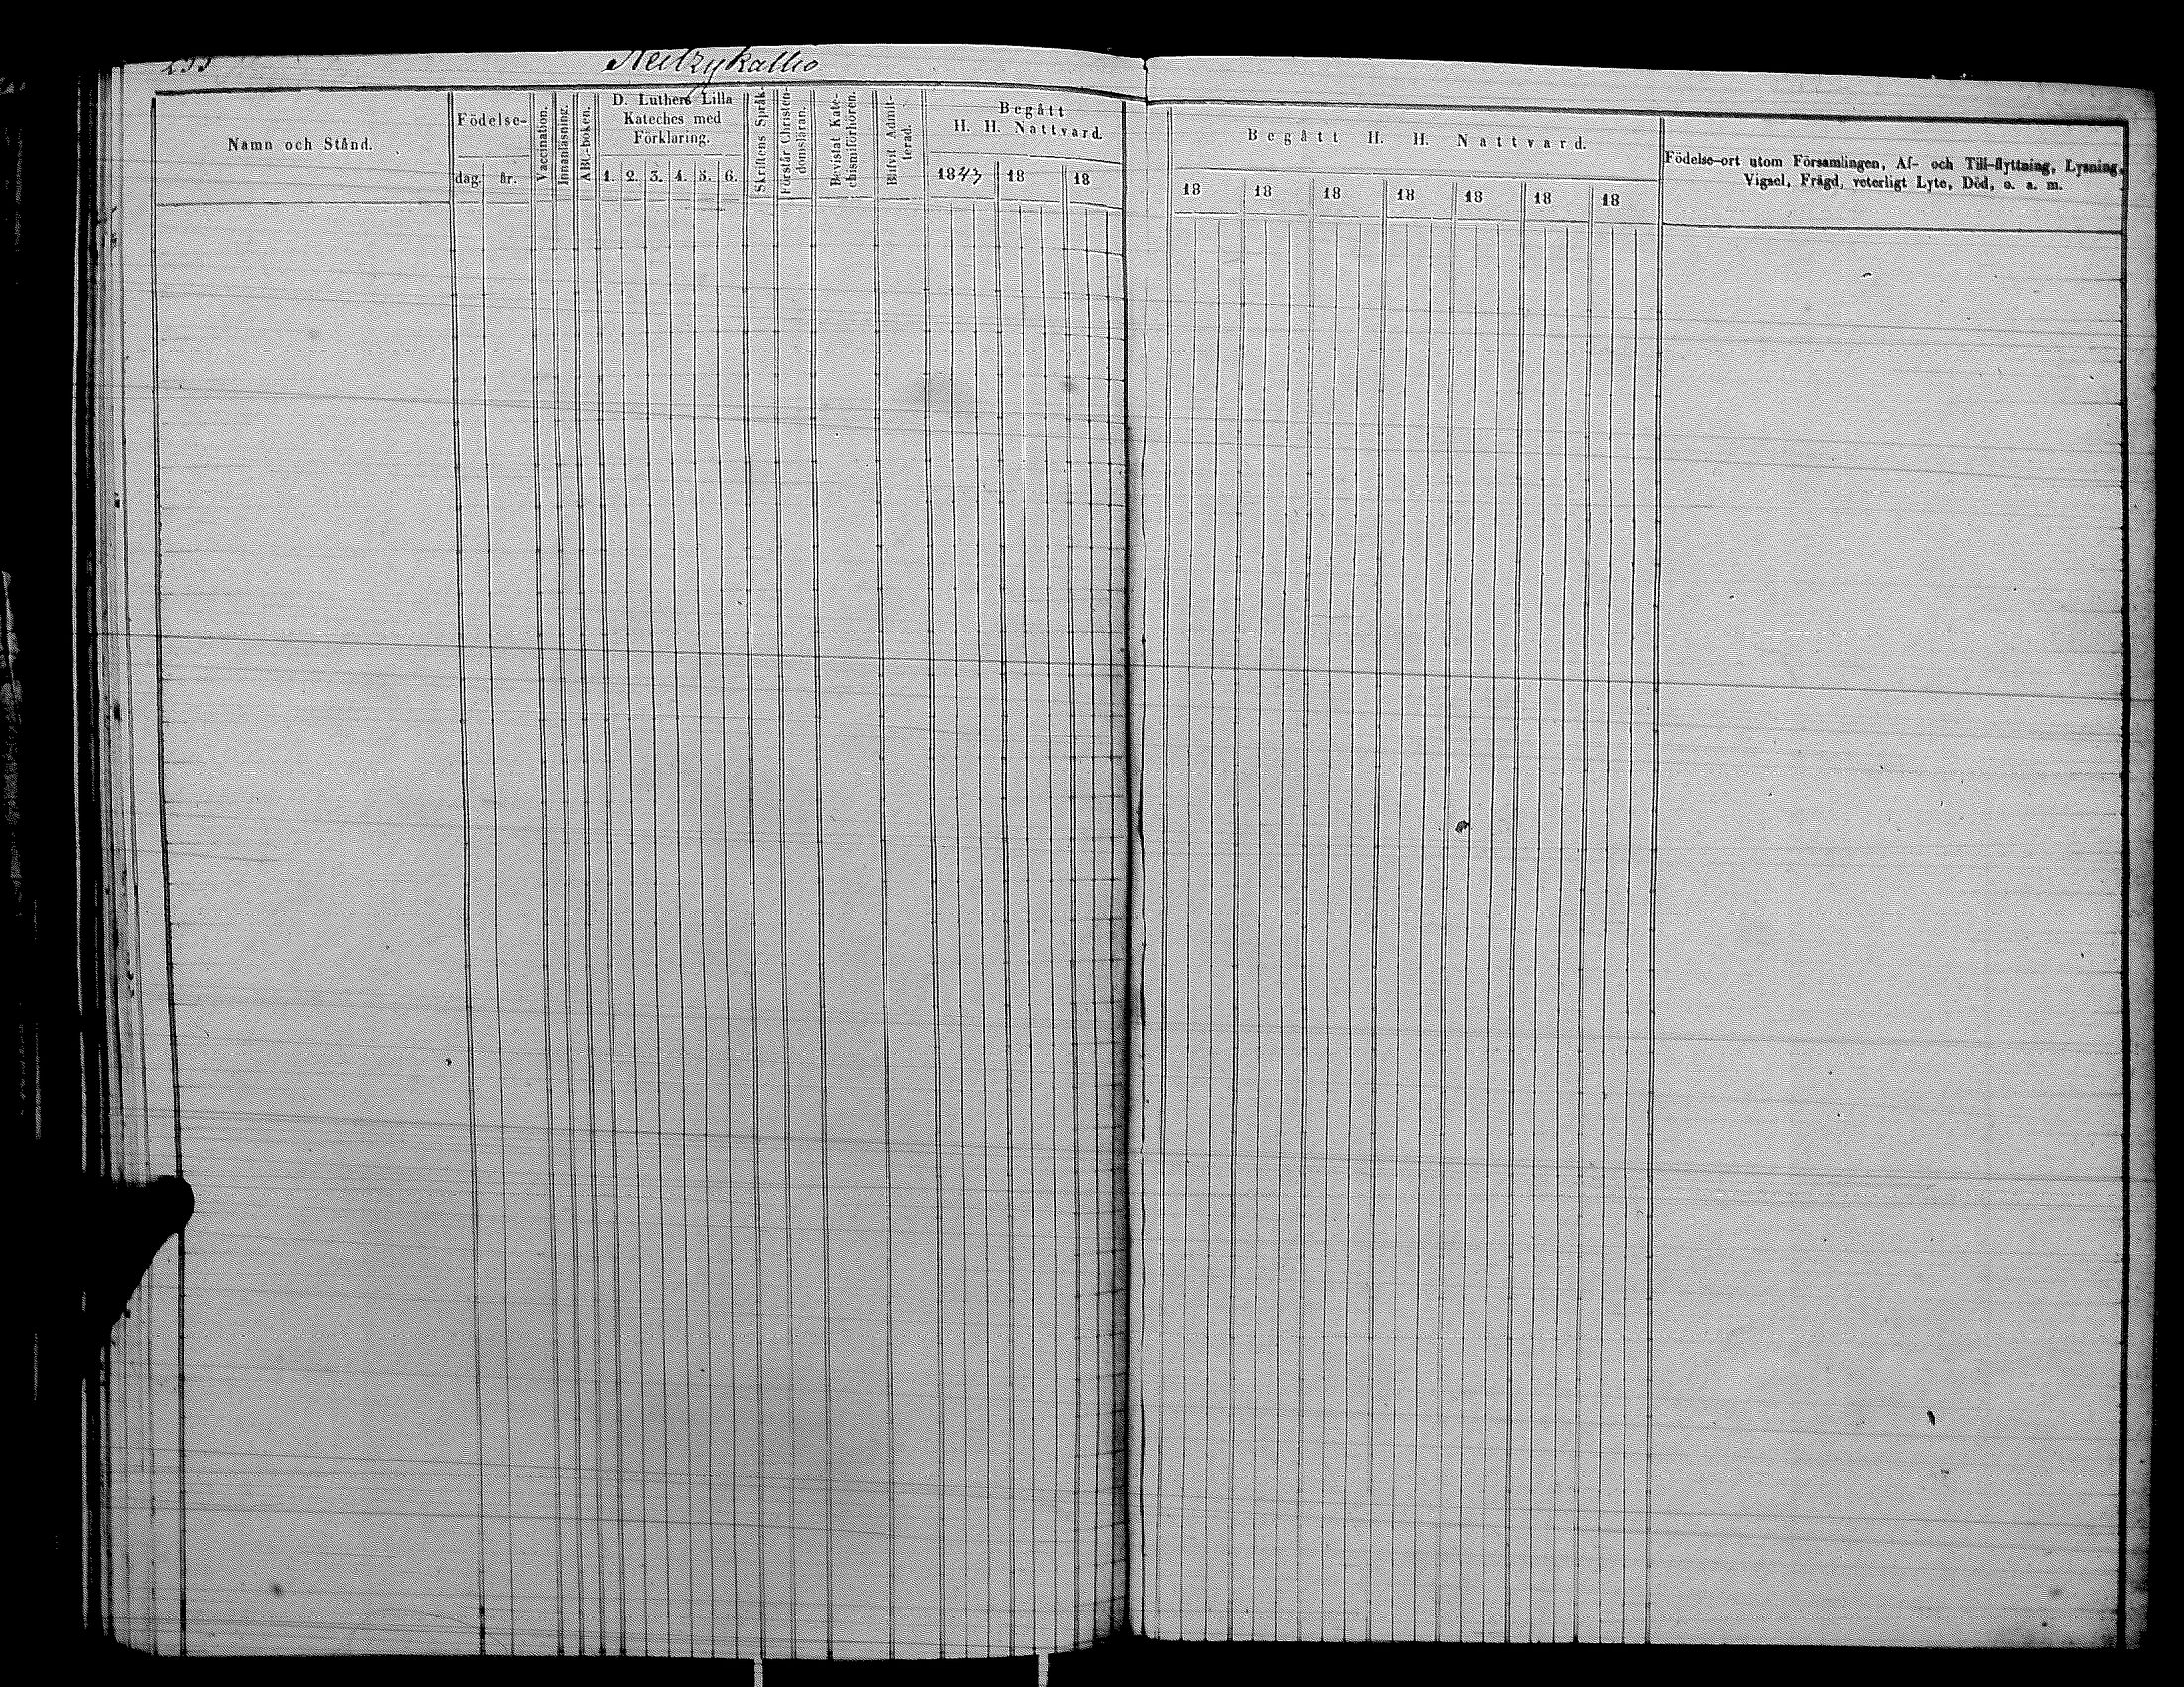 Neitzykallio
Namn och Stånd.
Födelse-
dag. år.
Vaccination.
Innanläsning.
ABC-boken.
D. Luthers Lilla
Kateches med
Förklaring.
1. 2. 3. 4. 5. 6.
Skriftens Språk.
Förstår Christen-
domsläran.
Bevistat Kate-
chismiförhören.
Blifvit Admit-
terad.
Begått
H. H. Nattvard.
1843 18 18
Begått H. H. Nattvard.
18 18 18 18 18 18 18
Födelse-ort utom Församlingen, Af- och Till-flyttning, Lysning,
Vigsel, Frägd, veterligt Lyte, Död, o. s. m.